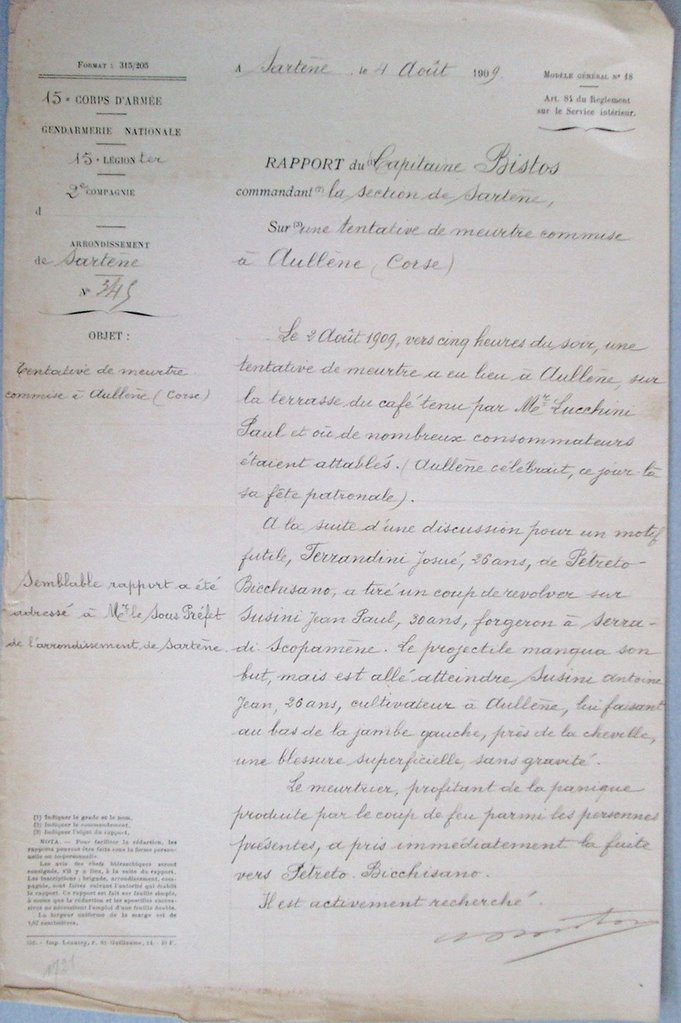 FORMAT : 315/205
15e CORPS D'ARMÉE
GENDARMERIE NATIONALE
15e LÉGION ter
2e COMPAGNIE
d
ARRONDISSEMENT
de Sartène
N° 345
OBJET :
Tentative de meurtre
commise à Aullène (Corse)
Semblable rapport a été
adressé à Mr le Sous Préfet
de l'arrondissement de Sartène
A Sartène, le 4 Août 1909
MODÈLE GÉNÉRAL N° 18
Art. 84 du Règlement
sur le Service intérieur.
RAPPORT du (1) Capitaine Bistos
commandant (2) la section de Sartène,
Sur (3) une tentative de meurtre commise
à Aullène (Corse)
Le 2 Août 1909, vers cinq heures du soir, une
tentative de meurtre a eu lieu à Aullène, sur
la terrasse du café tenu par Mr Lucchini
Paul et où de nombreux consommateurs
étaient attablés. (Aullène célébrait, ce jour-là
sa fête patronale).
A la suite d'une discussion pour un motif
futile, Terrandini Josué, 26 ans, de Petreto-
Bicchisano, a tiré un coup de revolver sur
Susini Jean Paul, 30 ans, forgeron à Serra-
di-Scopamène. Le projectile manqua son
but, mais est allé atteindre Susini Antoine
Jean, 26 ans, cultivateur à Aullène, lui faisant
au bas de la jambe gauche, près de la cheville,
une blessure superficielle, sans gravité.
Le meurtrier, profitant de la panique
produite par le coup de feu parmi les personnes
présentes, a pris immédiatement la fuite
vers Petreto-Bicchisano.
Il est activement recherché.
(1) Indiquer le grade et le nom.
(2) Indiquer le commandement.
(3) Indiquer l'objet du rapport.
NOTA. — Pour faciliter la rédaction, les
rapports peuvent être faits sous la forme person-
nelle ou impersonnelle.
Les avis des chefs hiérarchiques seront
consignés, s'il y a lieu, à la suite du rapport.
Les inscriptions : brigade, arrondissement, com-
pagnie, sont faites suivant l'autorité qui établit
le rapport. Ce rapport est fait sur feuille simple,
à moins que la rédaction et les apostilles succes-
sives ne nécessitent l'emploi d'une feuille double.
La largeur uniforme de la marge est de